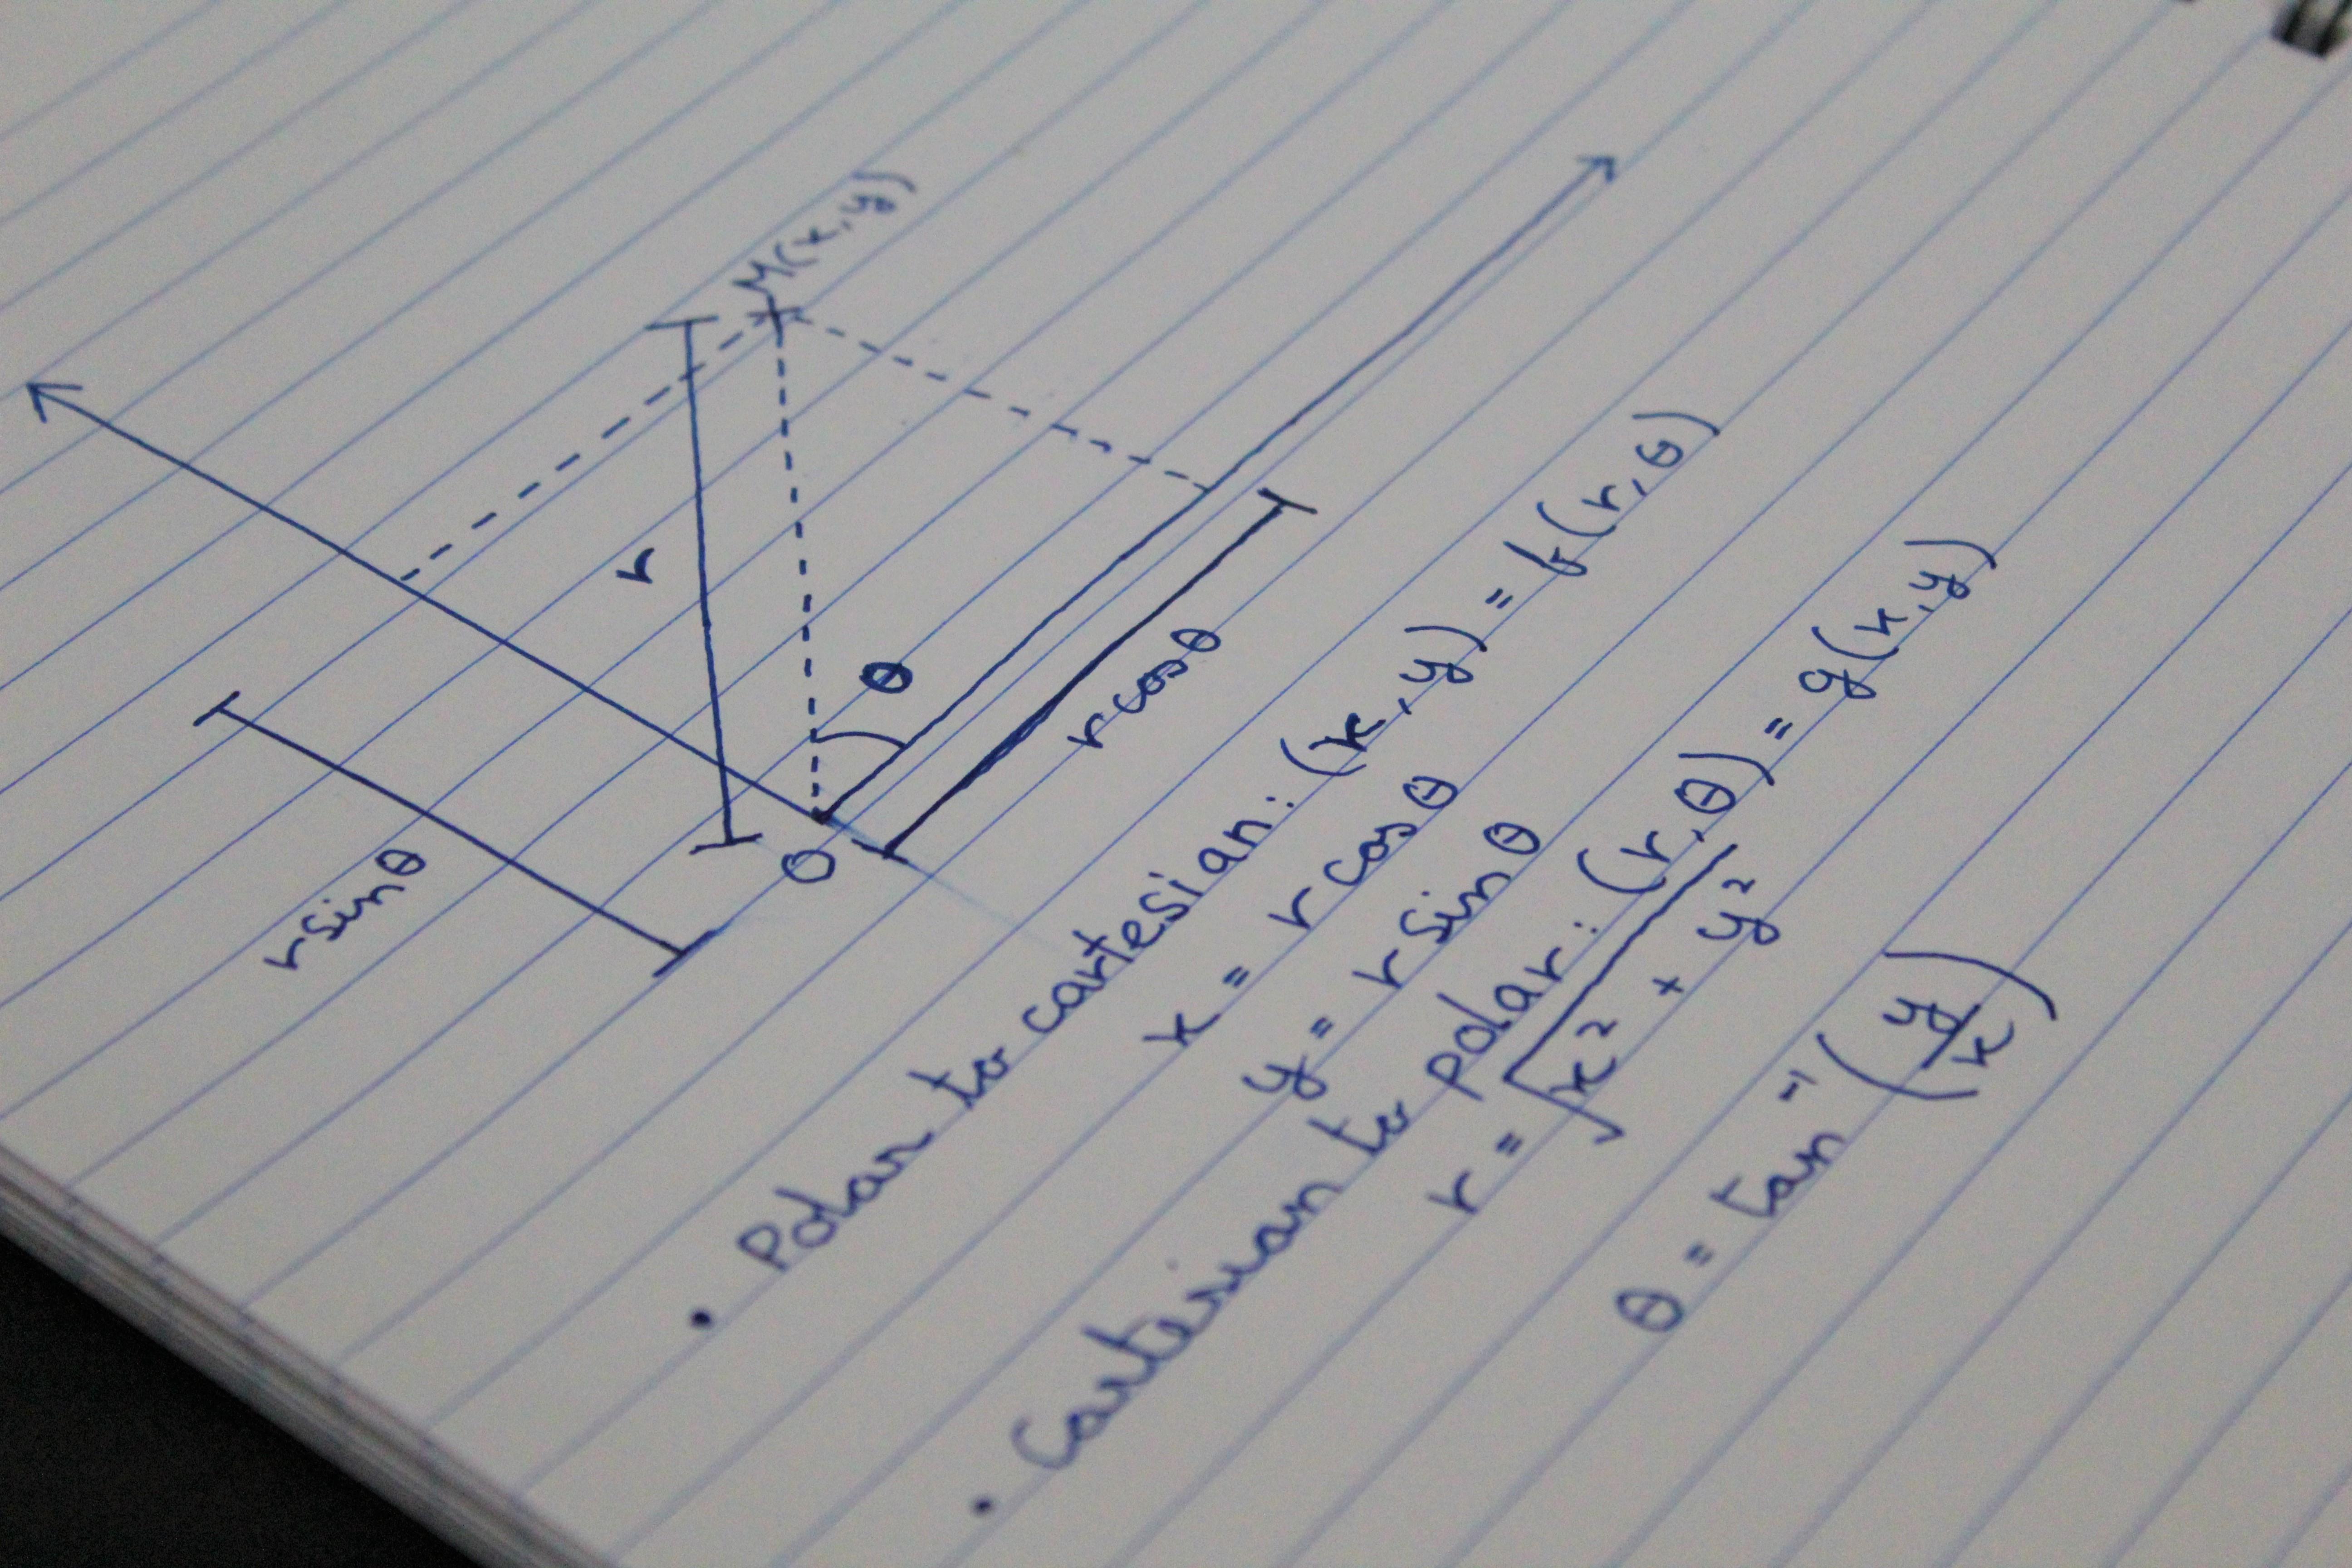 M(x,y)
r
θ
r sin θ
O
r cos θ
• Polar to cartesian: (x,y) = f(r,θ)
x = r cos θ
y = r sin θ
• Cartesian to polar: (r,θ) = g(x,y)
r = √(x² + y²)
θ = tan⁻¹(y/x)